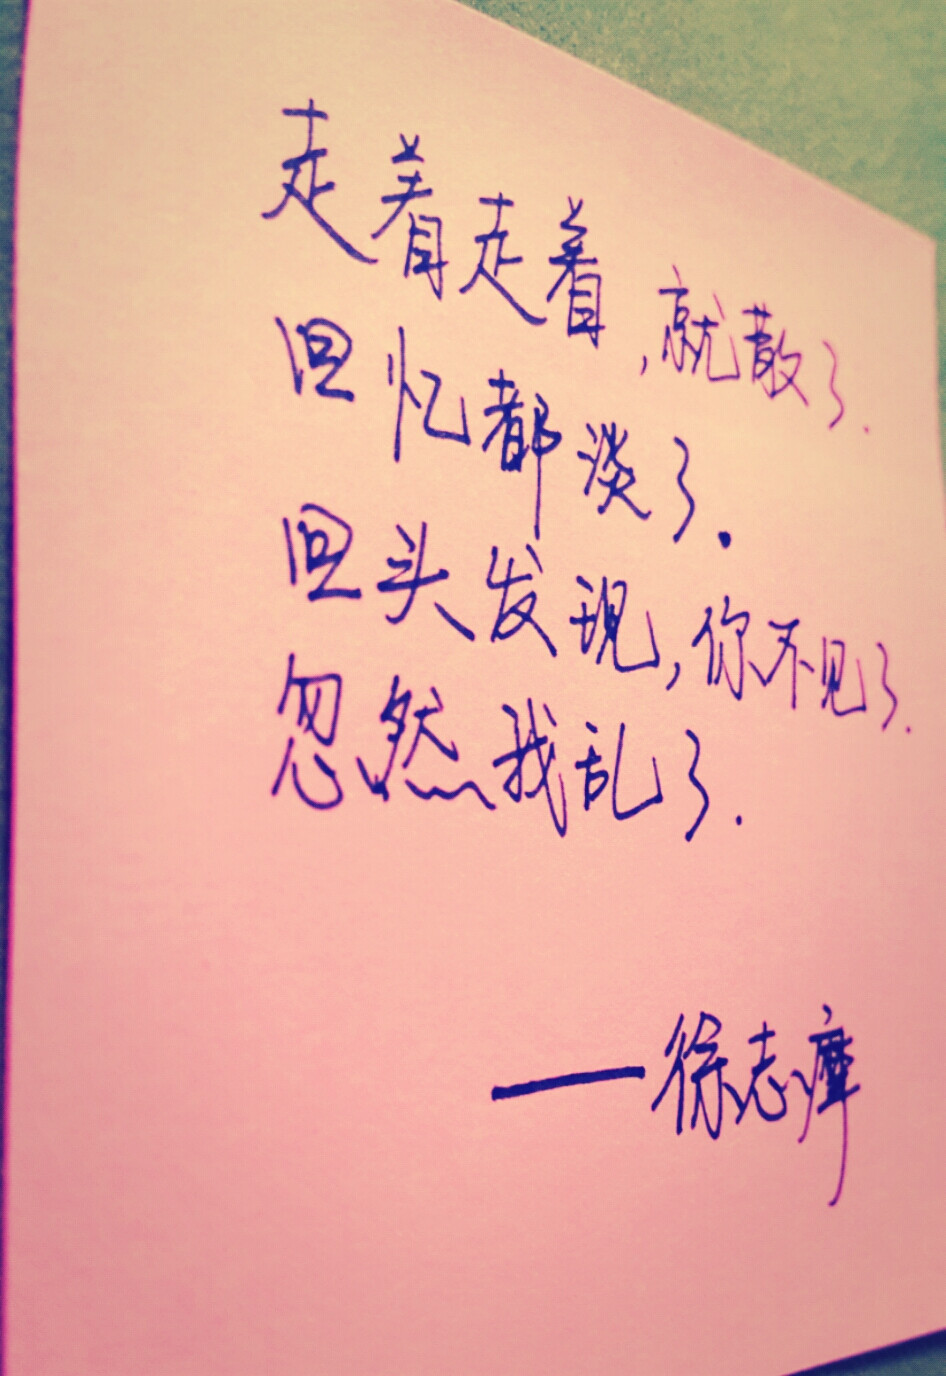 走着走着,就散了.
回忆都淡了.
回头发现,你不见了.
忽然我乱了.
——徐志摩